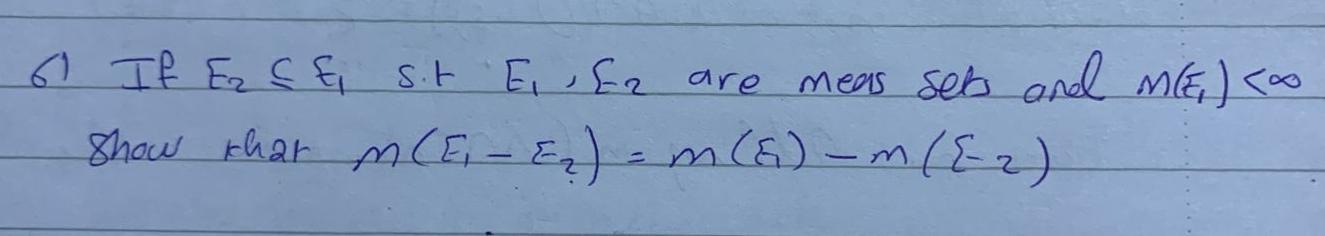 6) If E₂ ⊆ E₁ s.t E₁, E₂ are meas sets and m(E₁) < ∞
Show that m(E₁ - E₂) = m(E₁) - m(E₂)